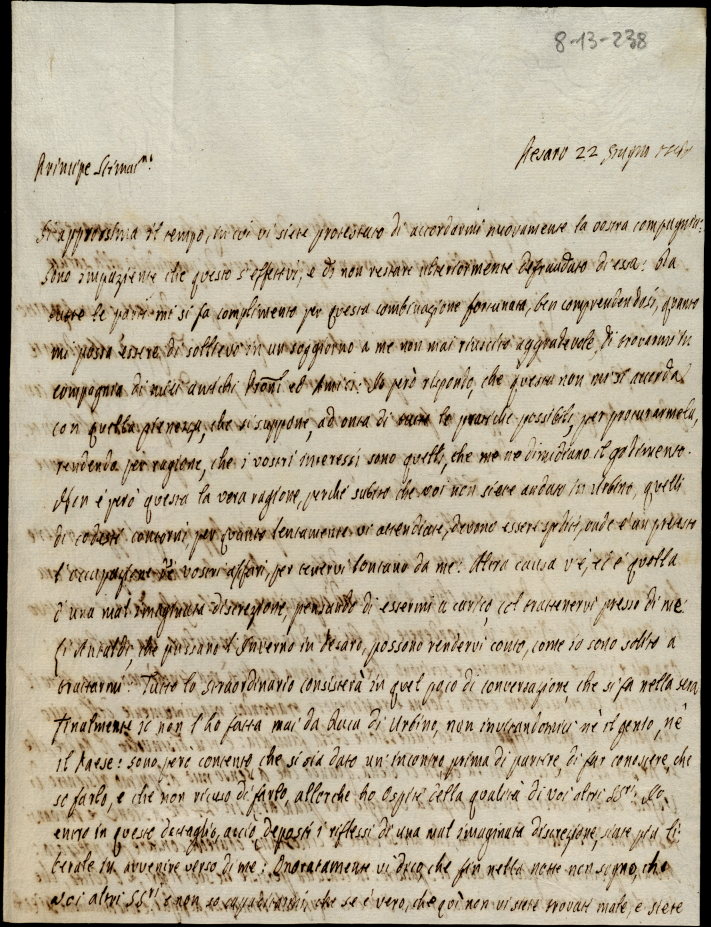 8-13-238
Pesaro 22 Giugno
Principe Stimat.mo
Si approssima il tempo, in cui vi siete protestato di accordarmi nuovamente la vostra compagnia:
sono impaziente che questo s'effettui, e di non restare ulteriormente defraudato di essa: Da
tutte le parti mi si fa complimento per questa combinazione fortunata, ben comprendendosi, quanto
mi possa essere di sollievo in un soggiorno a me non mai riuscito aggradevole, di trovarmi in
compagnia di miei antichi Proni ed Amici: Io però rispondo, che questa non mi si accorda
con quella pienezza, che si suppone, ad onta di tutte le pratiche possibili per procurarmela,
rendendo per ragione, che i vostri interessi sono quelli, che me ne dimidiano il godimento.
Non è però questa la vera ragione, perché subito che voi non siete andato in Urbino, quelli
di codesti contorni per quanto lentamente vi attendiate, devono essere spediti, onde è un pretesto
l'occupazione de' vostri affari, per tenervi lontano da me: Altra causa v'è, ed è quella
d'una mal imaginata discrezione, pensando di essermi a carico, col trattenervi presso di me
Gli Antaldi, che passano l'Inverno in Pesaro, possono rendervi conto, come io sono solito a
trattarmi: Tutto lo straordinario consisterà in quel poco di conversazione, che si fa nella sera
Finalmente io non l'ho fatta mai da Duca di Urbino, non invitandomici né il genio, né
il Paese: sono però contento che si sia dato un incontro prima di partire, di far conoscere, che
so farlo, e che non ricuso di farlo, allorche ho Ospiti della qualità di voi altri SSri. Io
entro in questo dettaglio, acciò, deposti i riflessi di una mal imaginata discrezione, siate più li-
berale in avvenire verso di me: Onoratamente vi dico, che fin nella notte non sogno, che
voi altri SSri e non so che se è vero, che qui non vi siete trovati male, e siete